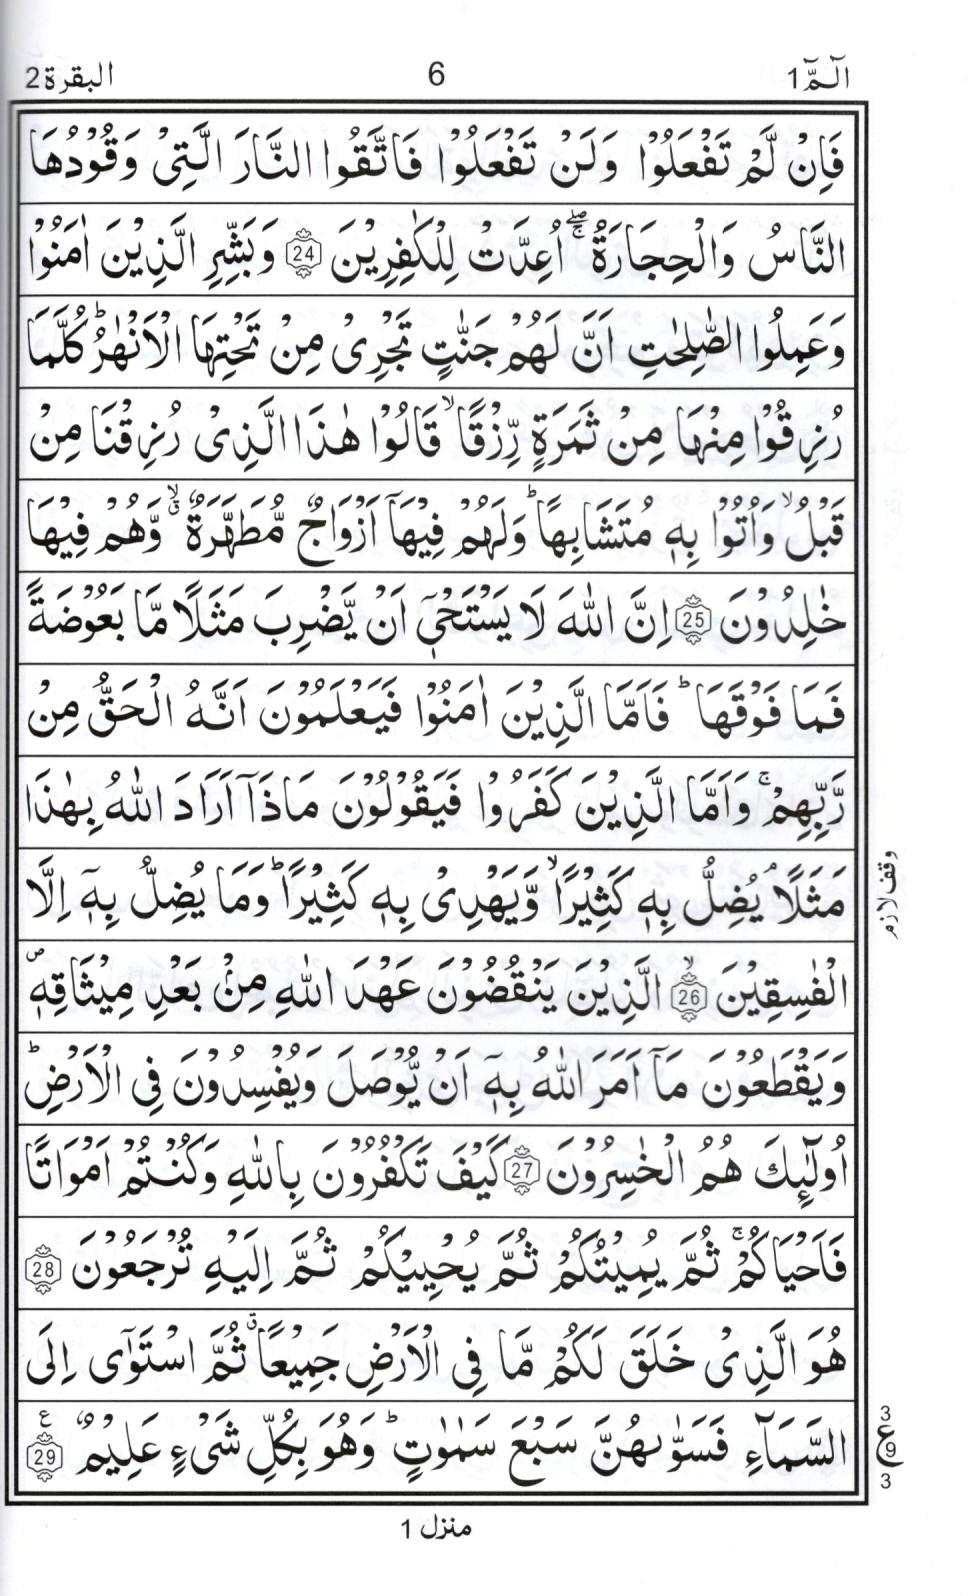 الٓـمّٓ 1 6 البقرة 2
فَاِنْ لَّمْ تَفْعَلُوْا وَلَنْ تَفْعَلُوْا فَاتَّقُوا النَّارَ الَّتِىْ وَقُوْدُهَا
النَّاسُ وَالْحِجَارَةُ ۖۚ اُعِدَّتْ لِلْكٰفِرِيْنَ 24 وَبَشِّرِ الَّذِيْنَ اٰمَنُوْا
وَعَمِلُوا الصّٰلِحٰتِ اَنَّ لَهُمْ جَنّٰتٍ تَجْرِىْ مِنْ تَحْتِهَا الْاَنْهٰرُ ؕ كُلَّمَا
رُزِقُوْا مِنْهَا مِنْ ثَمَرَةٍ رِّزْقًا ۙ قَالُوْا هٰذَا الَّذِىْ رُزِقْنَا مِنْ
قَبْلُ ۙ وَاُتُوْا بِهٖ مُتَشَابِهًا ؕ وَلَهُمْ فِيْهَآ اَزْوَاجٌ مُّطَهَّرَةٌ ۙۗ وَّهُمْ فِيْهَا
خٰلِدُوْنَ 25 اِنَّ اللّٰهَ لَا يَسْتَحْىٖٓ اَنْ يَّضْرِبَ مَثَلًا مَّا بَعُوْضَةً
فَمَا فَوْقَهَا ؕ فَاَمَّا الَّذِيْنَ اٰمَنُوْا فَيَعْلَمُوْنَ اَنَّهُ الْحَقُّ مِنْ
رَّبِّهِمْ ۚ وَاَمَّا الَّذِيْنَ كَفَرُوْا فَيَقُوْلُوْنَ مَاذَآ اَرَادَ اللّٰهُ بِهٰذَا
مَثَلًا ۘ يُضِلُّ بِهٖ كَثِيْرًا ۙ وَّيَهْدِىْ بِهٖ كَثِيْرًا ؕ وَمَا يُضِلُّ بِهٖٓ اِلَّا
وقف لازم
الْفٰسِقِيْنَ ۙ 26 الَّذِيْنَ يَنْقُضُوْنَ عَهْدَ اللّٰهِ مِنْۢ بَعْدِ مِيْثَاقِهٖ ص
وَيَقْطَعُوْنَ مَآ اَمَرَ اللّٰهُ بِهٖٓ اَنْ يُّوْصَلَ وَيُفْسِدُوْنَ فِى الْاَرْضِ ؕ
اُولٰٓئِكَ هُمُ الْخٰسِرُوْنَ 27 كَيْفَ تَكْفُرُوْنَ بِاللّٰهِ وَكُنْتُمْ اَمْوَاتًا
فَاَحْيَاكُمْ ۚ ثُمَّ يُمِيْتُكُمْ ثُمَّ يُحْيِيْكُمْ ثُمَّ اِلَيْهِ تُرْجَعُوْنَ 28
هُوَ الَّذِىْ خَلَقَ لَكُمْ مَّا فِى الْاَرْضِ جَمِيْعًا ق ثُمَّ اسْتَوٰٓى اِلَى
السَّمَآءِ فَسَوّٰىهُنَّ سَبْعَ سَمٰوٰتٍ ؕ وَهُوَ بِكُلِّ شَىْءٍ عَلِيْمٌ ع 29
3
ع 9
3
منزل 1